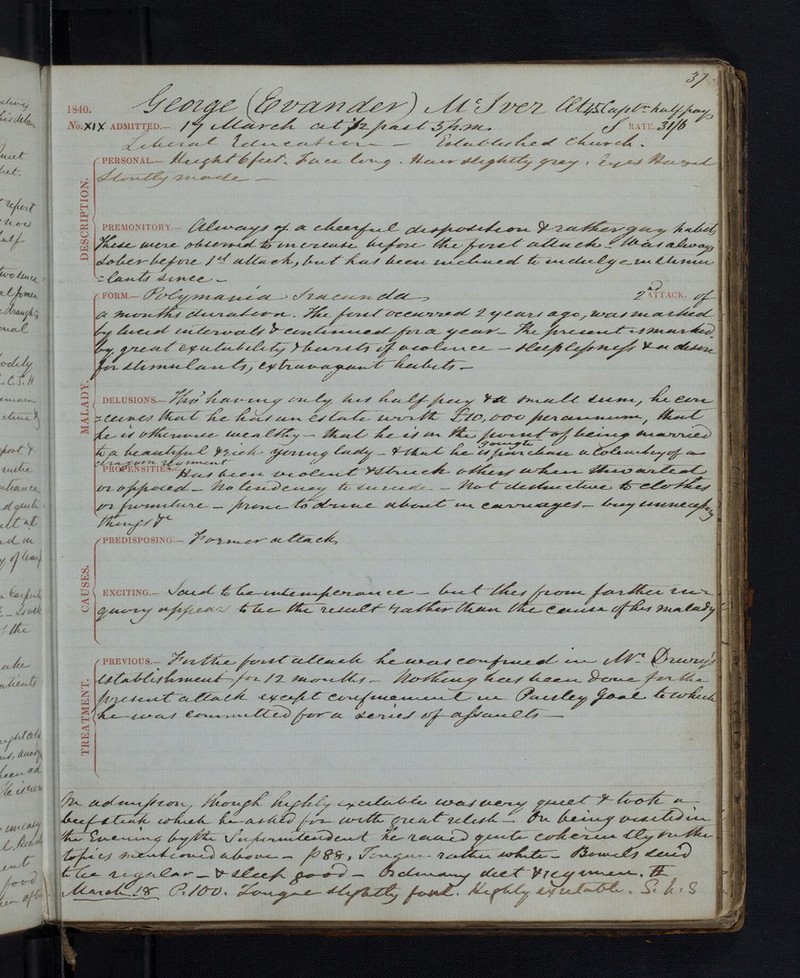 37
1840.
George (Evander) McIver Aet 45. Captn. half pay
No. XIX ADMITTED.— 17 March at 1/2 past 5 p.m. S RATE. 31/6
Liberal Education — Established Church.
DESCRIPTION.
PERSONAL.— Height 6 feet. Face long. Hair slightly grey. Eyes Hazel
Stoutly made —
PREMONITORY.— Always of a cheerful disposition & rather gay habits
These were observed to increase before the first attack. Was always
sober before 1st attack, but has been inclined to indulge in stimu
=lants since —
MALADY.
FORM.— Polymania Iracunda 2nd ATTACK. of
a months duration. The first occurred 2 years ago, was marked
by lucid intervals & continued for a year — The present is marked
by great excitability & bursts of violence — sleeplessness & a desire
for stimulants, extravagant habits —
DELUSIONS.— Tho' having only his half pay & a small sum, he con
=ceives that he has an Estate worth £10,000 per annum, that
he is otherwise wealthy — that he is on the point of being married
to a beautiful & rich young lady — & that he is going to purchase a Colonelcy of a
dragoon regiment
PROPENSITIES.— Has been violent & struck others when thwarted
or opposed — No tendency to suicide — Not destructive to clothes
or furniture — prone to drive about in carriages — buy unnecessary
things &c
CAUSES.
PREDISPOSING.— Former attack
EXCITING.— Said to be intemperance — but this from farther in=
quiry appears to be the result rather than the cause of his malady
TREATMENT.
PREVIOUS.— For the first attack he was confined in Mr. Drury's
establishment for 12 months — Nothing has been done for the
present attack except confinement in Paisley Gaol to which
he was committed for a series of assaults —
On admission, though highly excitable was very quiet & took a
beef steak which he asked for with great relish — On being visited in
the Evening by the Superintendent he raved quite coherently on the
topics mentioned above — P 88, Tongue rather white — Bowels said
to be regular — & sleep good — Ordinary diet & regimen.
March 18 P. 100. Tongue slightly foul. Highly excitable. S. h. S